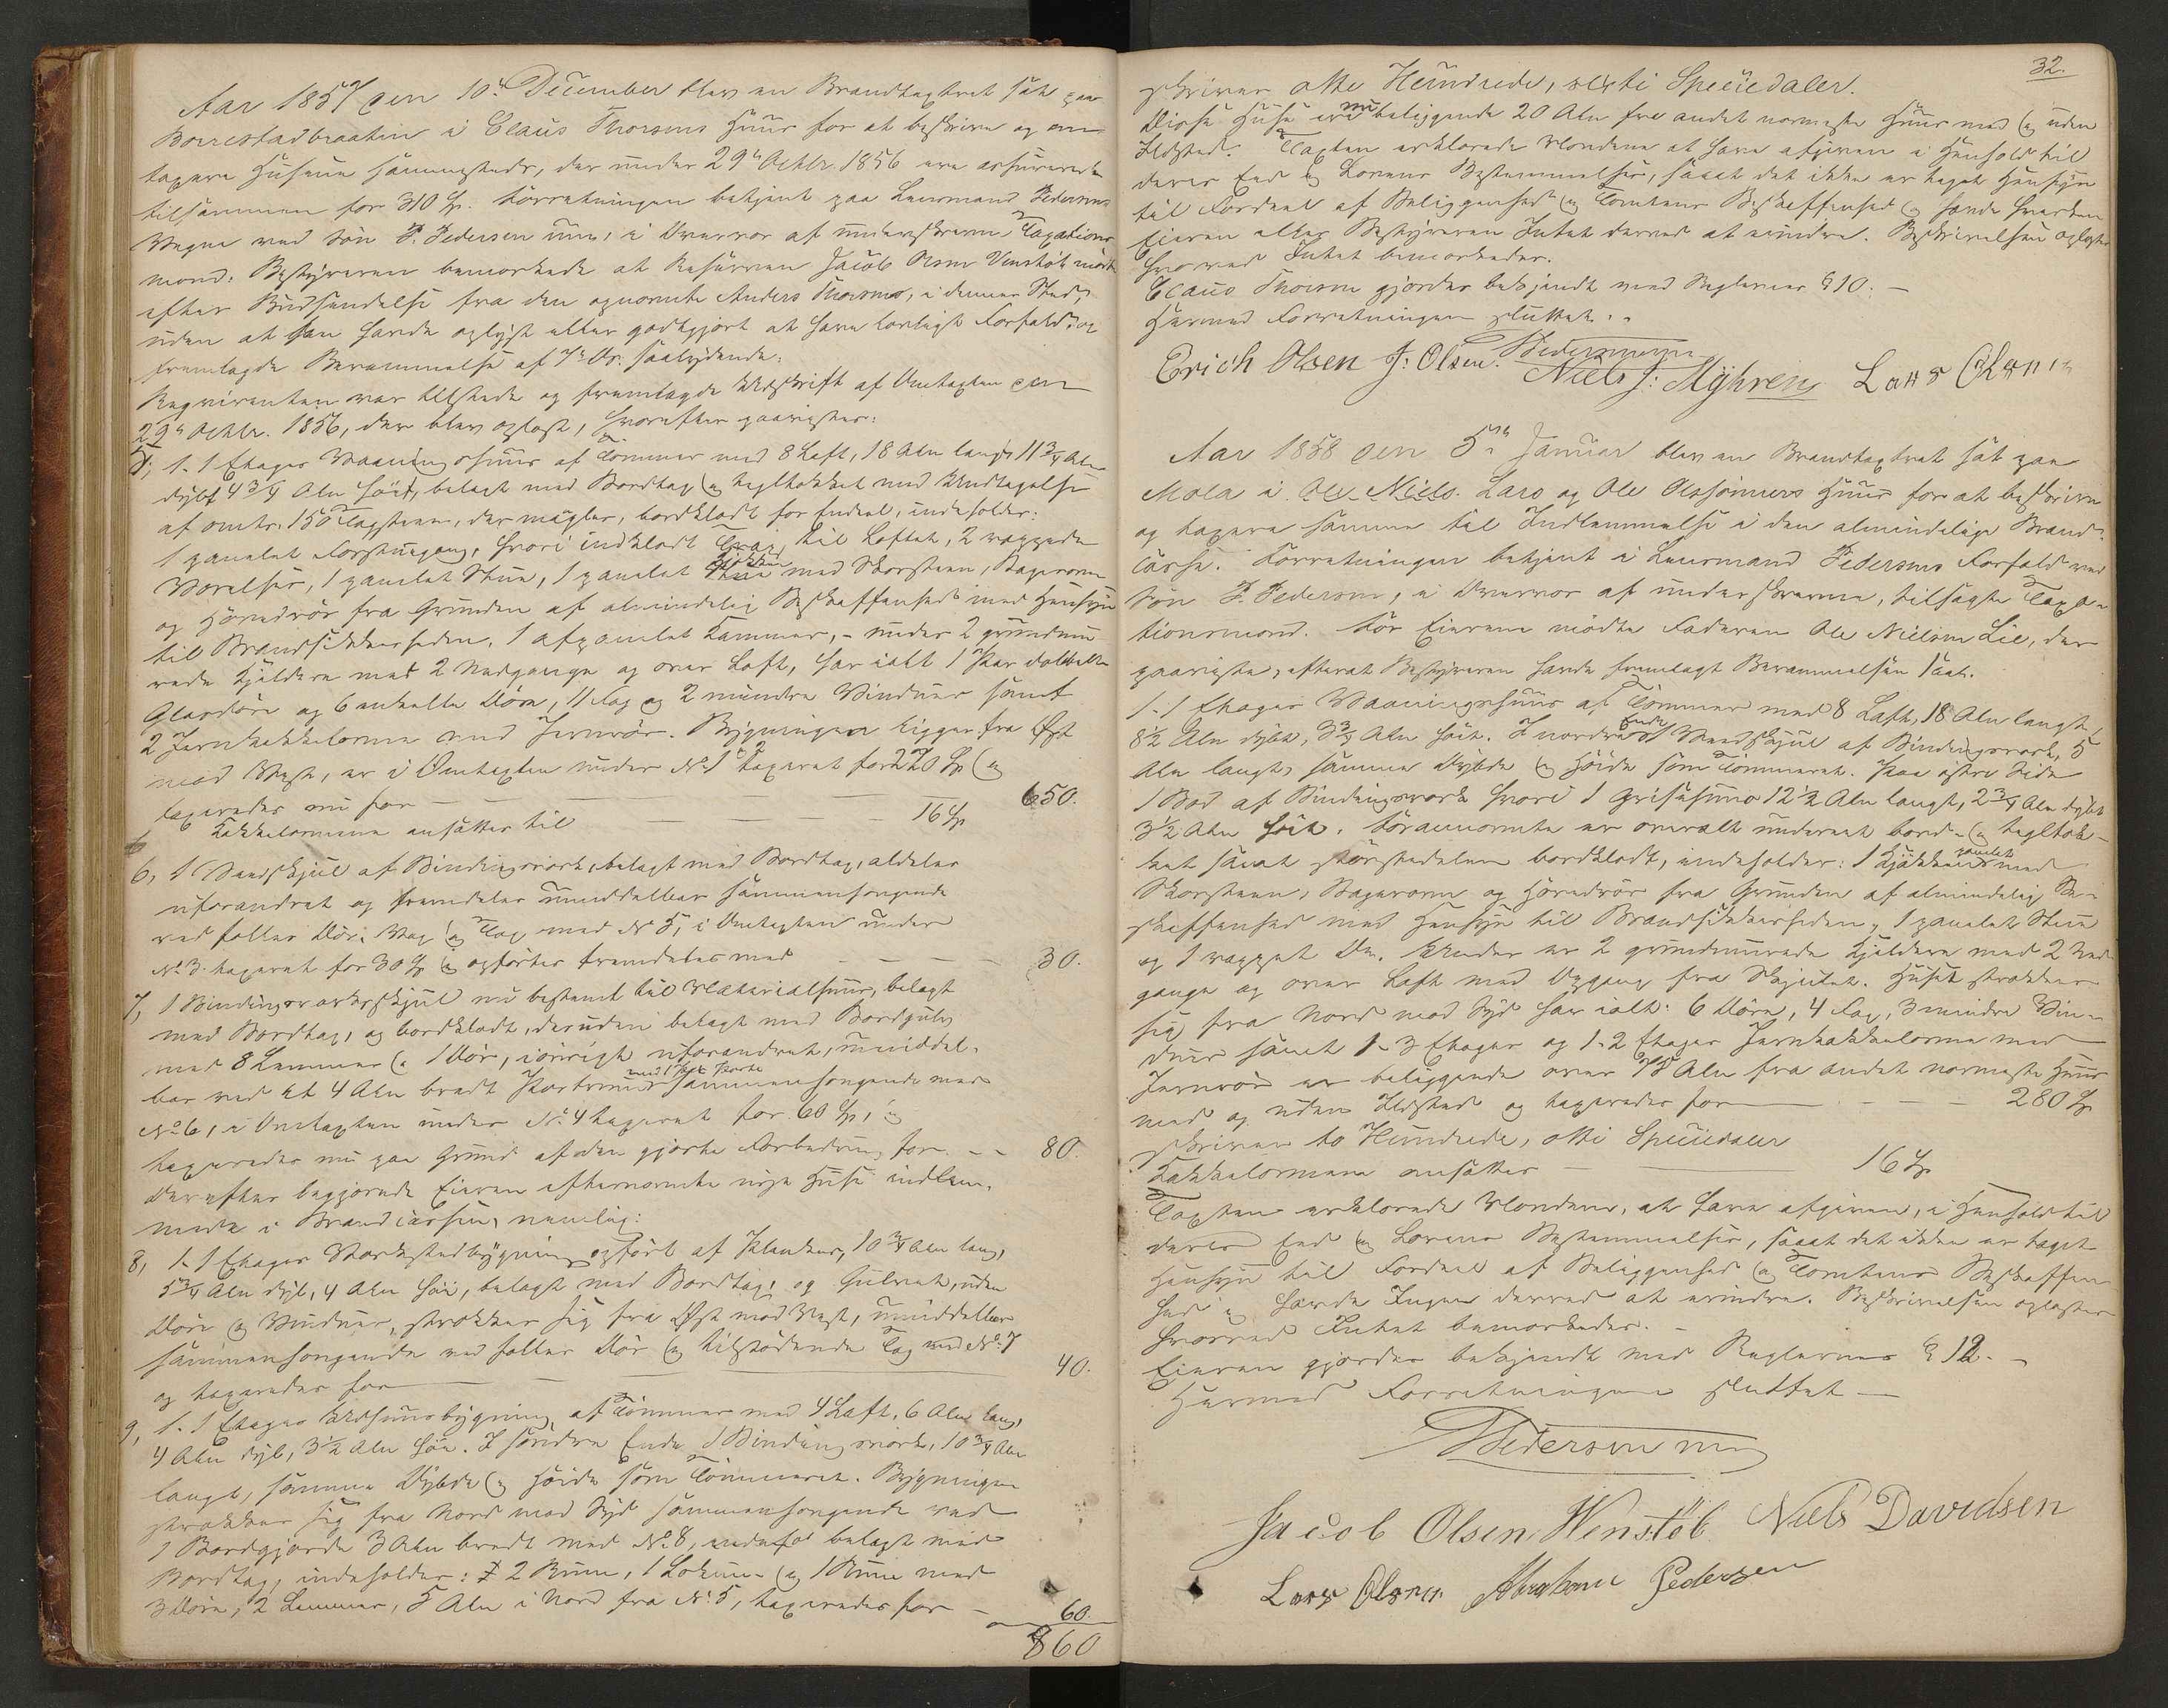 Aar 1857 den 10de December blev en Brandtaxtret sat paa
Borrestadbraaten i Claus Thorsens Huus for at beskrive og om
taxere Husene sammesteds, der under 29de Octbr. 1856 ere assurerede
tilsammen for 310 Sp. Forretningen betjent paa Leensmand Pedersens
Vegne ved Søn P. Pedersen mm, i Overvær af underskrevne Taxations
mænd. Bestyreren bemærkede at Jacob Olsen Venstøb mødte
efter Budsendelse fra den opnævnte Anders Thorsens, i dennes Sted,
uden at han havde oplyst eller godtgjort at have lovligt Forfald; og
fremlagde Berammelse af 7de Ds. saalydende:
Reqvirenten var tilstede og fremlagde Udskrift af Omtaxten den
29de Octbr. 1856, der blev oplæst, hvorefter paavistes:
5, 1. 1 Etages Vaaningshuus af Tømmer med 8 Laft, 18 Alen langt, 11 3/4 Alen
dybt 4 3/4 Alen høit, belagt med Bordtag og tegltækket med Undtagelse
af omtr. 150 Tagsteen, der mangler, bordklædt for Endeel, indeholder:
1 panelet Forstuegang, hvori indklædt Trap til Loftet, 2 rappede
Værelser, 1 panelet Stue, 1 panelet Kjøkken med Skorsteen, Bagerovn
og Hørevør fra Grunden af almindelig Beskaffenhed med Hensyn
til Brandsikkerheden, 1 afpanelet Kammer, - under 2 grundmu
rede Kjældere med 2 Nedgange og over Loft, har ialt 1 Par dobbelte
Glasdøre og 6 enkelte Døre, 11 Fag og 2 mindre Vinduer samt
2 Jernkakkelovne med Jernrør. Bygningen ligger fra Øst
mod Vest, er i Omtaxten under No 1 & 2 taxeret for 220 Sp og
taxeredes nu for — 650.
Kakkelovnene ansættes til — 16 Sp
6, 1 Vedskjul af Bindingsværk, belagt med Bordtag, aldeles
uforandret og fremdeles umiddelbar sammenhængende
ved fælles Dør, Væg og Tag med No 5, i Omtaxten under
No 3 taxeret for 30 Sp og opførtes fremdeles med — 30.
7, 1 Bindingsværksskjul nu bestemt til Materialhuus, belagt
med Bordtag, og bordklædt, desuden belagt med Bordgulv
med 8 Lemmer og 1 Dør, iøvrigt uforandret, umiddel-
bar ved et 4 Alen bredt Portrum med 1 Port sammenhængende med
No 6, i Omtaxten under No 4 taxeret for 60 Sp, og
taxeredes nu paa Grund af den gjorte Forbedring for — 80.
Derefter begjærede Eieren efternævnte nye Huse indlem-
mede i Brandcassen, nemlig:
8, 1. 1 Etages Værkstedbygning opført af Planker, 10 3/4 Alen lang,
5 3/4 Alen dyb, 4 Alen høi, belagt med Bordtag og Gulvet, uden
Døre og Vinduer, strækker sig fra Øst mod Vest, umiddelbar
sammenhængende ved fælles Dør og tilstødende Tag med No 7
og taxeredes for — 40.
9, 1. 1 Etages Udhuusbygning af Tømmer med 4 Laft, 6 Alen lang,
4 Alen dyb, 3 1/2 Alen høi. I søndre Ende 1 Bindingsværk, 10 3/4 Alen
langt, samme Dybde og Høide som Tømmeret. Bygningen
strækker sig fra Nord mod Syd sammenhængende ved
1 Bordgjærde 3 Alen bredt med No 8, belagt med
Bordtag, indeholder: 2 Rum, 1 Locum og 1 Rum med
3 Døre, 2 Lemmer, 5 Alen i Nord fra No 5, taxeredes for — 60.
860
32.
skriver otte Hundrede, sexti Speciedaler.
Disse Huse ere nu beliggende 20 Alen fra andet nærmeste Huus med og uden
Ildsted. Taxten erklærede Mændene at have afgiven i Henhold til
deres Eed og Lovens Bestemmelser, saaat det ikke er taget Hensyn
til Fordeel af Beliggenhed og Tomtens Beskaffenhed og havde hverken
Eieren eller Bestyreren Intet derved at erindre. Beskrivelsen oplæstes
hvorved Intet bemærkedes.
Claus Thorsen gjordes bekjendt med Reglernes § 10. -
Hermed Forretningen sluttet.
Pedersen mm
Erich Olsen J: Olsen. Niels J: Myhren Lars Olsen
Aar 1858 den 5te Januar blev en Brandtaxtret sat paa
Mæla i Ole, Niels, Lars og Ole Olssønners Huus for at beskrive
og taxere samme til Indlemmelse i den almindelige Brand-
casse. Forretningen betjent i Leensmand Pedersens Forfald ved
Søn P. Pedersen, i Overvær af underskrevne, tilsagte Taxa-
tionsmænd. For Eierene mødte Faderen Ole Nielsen Lie, der
paaviste, efterat Bestyreren havde fremlagt Berammelsen saal.
1. 1 Etages Vaaningshuus af Tømmer med 8 Laft, 18 Alen langt,
8 1/2 Alen dybt, 3 3/4 Alen høit. I nordre Ende 1 Vedskjul af Bindingsværk, 5
Alen langt, samme Dybde og Høide som Tømmeret. Paa østre Side
1 Bod af Bindingsværk hvori 1 Grisehuus 12 1/2 Alen langt, 2 3/4 Alen dybt
3 1/2 Alen høit. Forannævnte er overalt undernet bord- og tegltæk-
ket samt størstedelen bordklædt, indeholder: 1 panelet Kjøkken med
Skorsteen, Bagerovn og Hørevør fra Grunden af almindelig Be-
skaffenhed med Hensyn til Brandsikkerheden, 1 panelet Stue
og 1 rappet Do. Under er 2 grundmurede Kjældere med 2 Ned-
gange og over Loft med Opgang fra Skjulet. Huset strækker
sig fra Nord mod Syd har ialt: 6 Døre, 4 Fag, 3 mindre Vin-
duer samt 1. 3 Etages og 1. 2 Etages Jernkakkelovne med
Jernrør er beliggende over 78 Alen fra andet nærmeste Huus
med og uden Ildsted og taxeredes for — 280 Sp
skriver to Hundrede, otti Speciedaler
Kakkelovnene ansættes — 16 Sp
Taxten erklærede Mændene, at have afgiven, i Henhold til
deres Eed og Lovens Bestemmelser, saaat det ikke er taget
Hensyn til Fordeel af Beliggenhed og Tomtens Beskaffen
hed og havde Ingen derved at erindre. Beskrivelsen oplæstes
hvorved Intet bemærkedes. -
Eieren gjordes bekjendt med Reglernes § 12. -
Hermed Forretningen sluttet —
Pedersen mm
Jacob Olsen Wenstøb. Niels Davidsen
Lars Olsen Abraham Pedersen